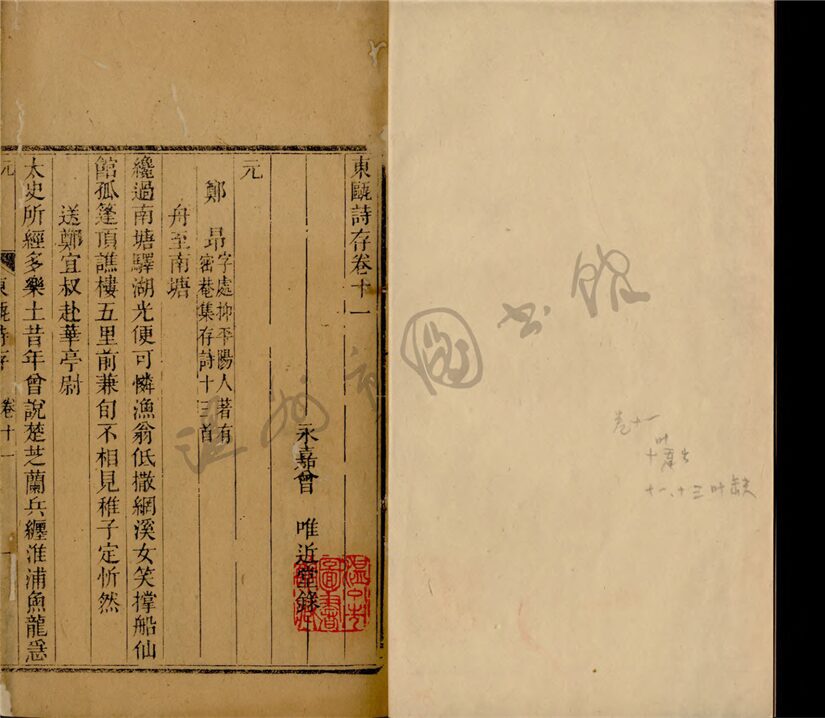 東甌詩存卷十一
永嘉曾 唯近堂錄
元
鄭 昂字處抑平陽人著有
密菴集存詩十三首
舟至南塘
纔過南塘驛湖光便可憐漁翁低撒網溪女笑撑船仙
館孤篷頂譙樓五里前兼旬不相見稚子定忻然
送鄭宜叔赴華亭尉
太史所經多樂土昔年曾說楚芝蘭兵纒淮浦魚龍急
元
東甌詩存
卷十一
一
温州市圖書館
卷十一
十一、十三叶缺